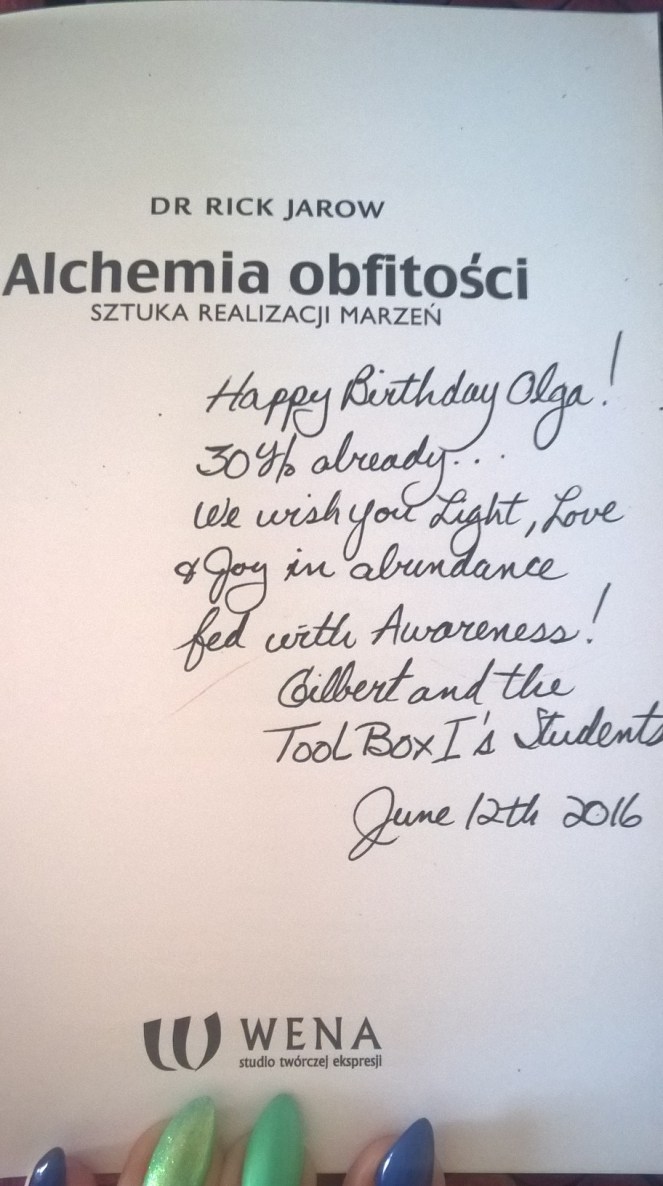 DR RICK JAROW
Alchemia obfitości
SZTUKA REALIZACJI MARZEŃ
Happy Birthday Olga!
30 already...
We wish you Light, Love
& Joy in abundance
fed with Awareness!
Gilbert and the
Tool Box I's Students
June 12th 2016
WENA
studio twórczej ekspresji